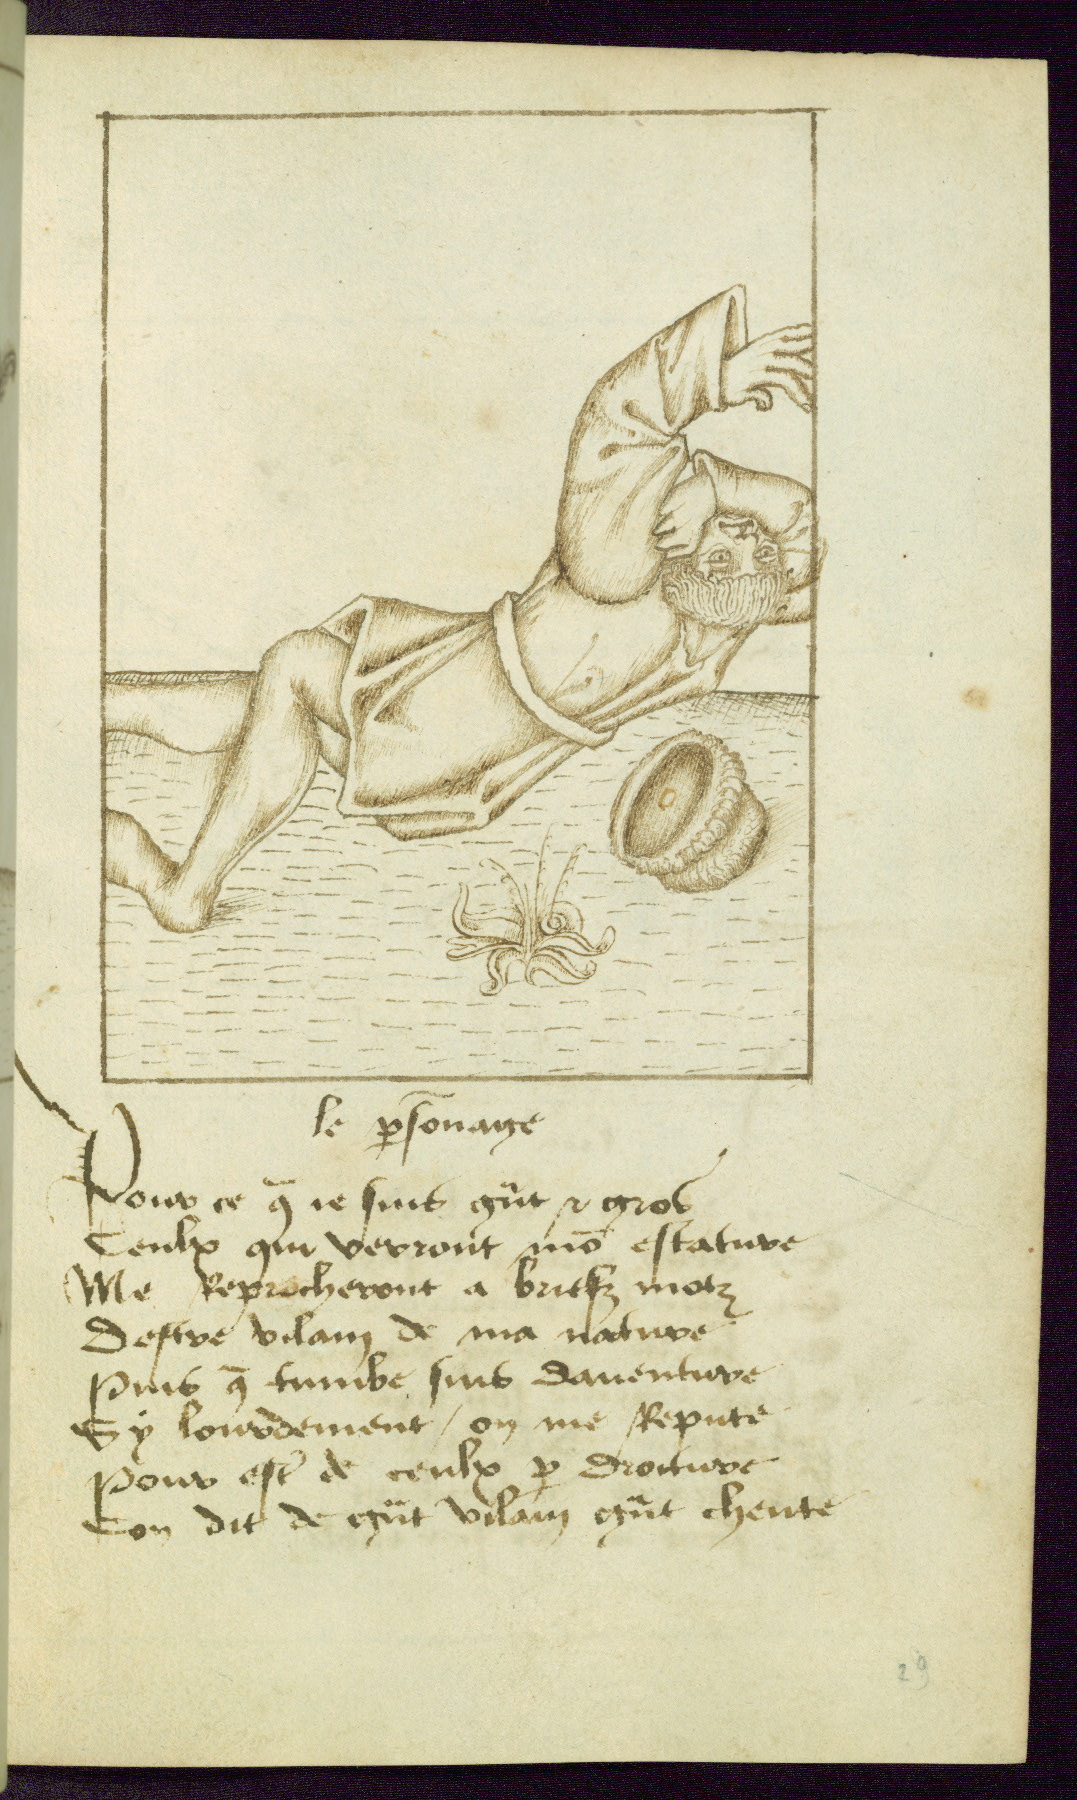 le p̄sonaige
Pour ce q̄ ie suis grāt & gros
Ceulx qui verront mō estature
Me Reprocheront a briefz motz
Destre vilain de ma nature
Puis q̄ tumbe suis dauenture
Sy lourdement / on me Repute
Pour est̄ de ceulx p̄ droiture
Con dit de grāt vilain grāt cheute
29